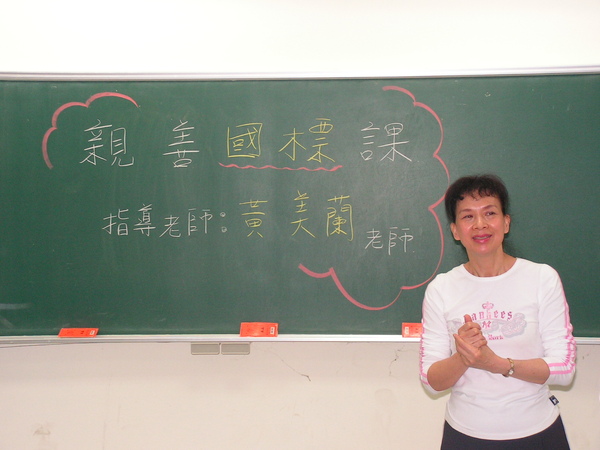 親善國標課
指導老師：黃美蘭老師
Yankees